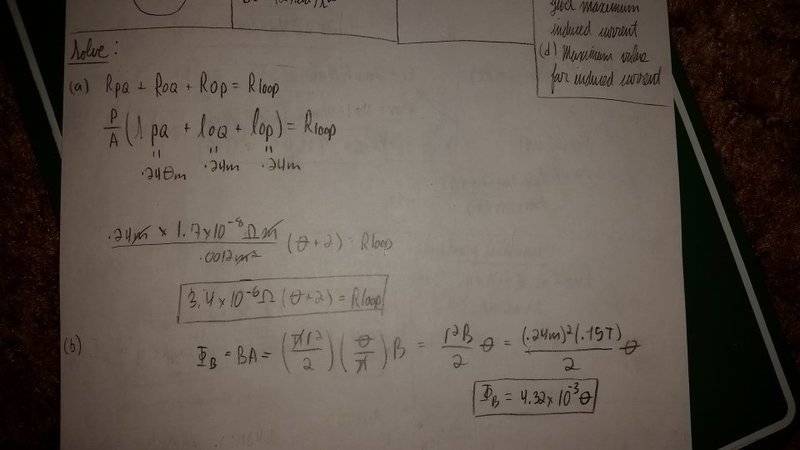 find maximum
induced current
(d) Maximum value
for induced current
Solve:
(a) RPQ + ROQ + ROP = Rloop
P/A (lPQ + lOQ + lOP) = Rloop
.24θm .24m .24m
.24m × 1.7×10⁻⁸ Ωm / .0012m² (θ+2) = Rloop
3.4×10⁻⁶Ω (θ+2) = Rloop
(b) ΦB = BA = (πr²/2)(θ/π)B = r²B/2 θ = (.24m)²(.15T)/2 θ
ΦB = 4.32×10⁻³θ